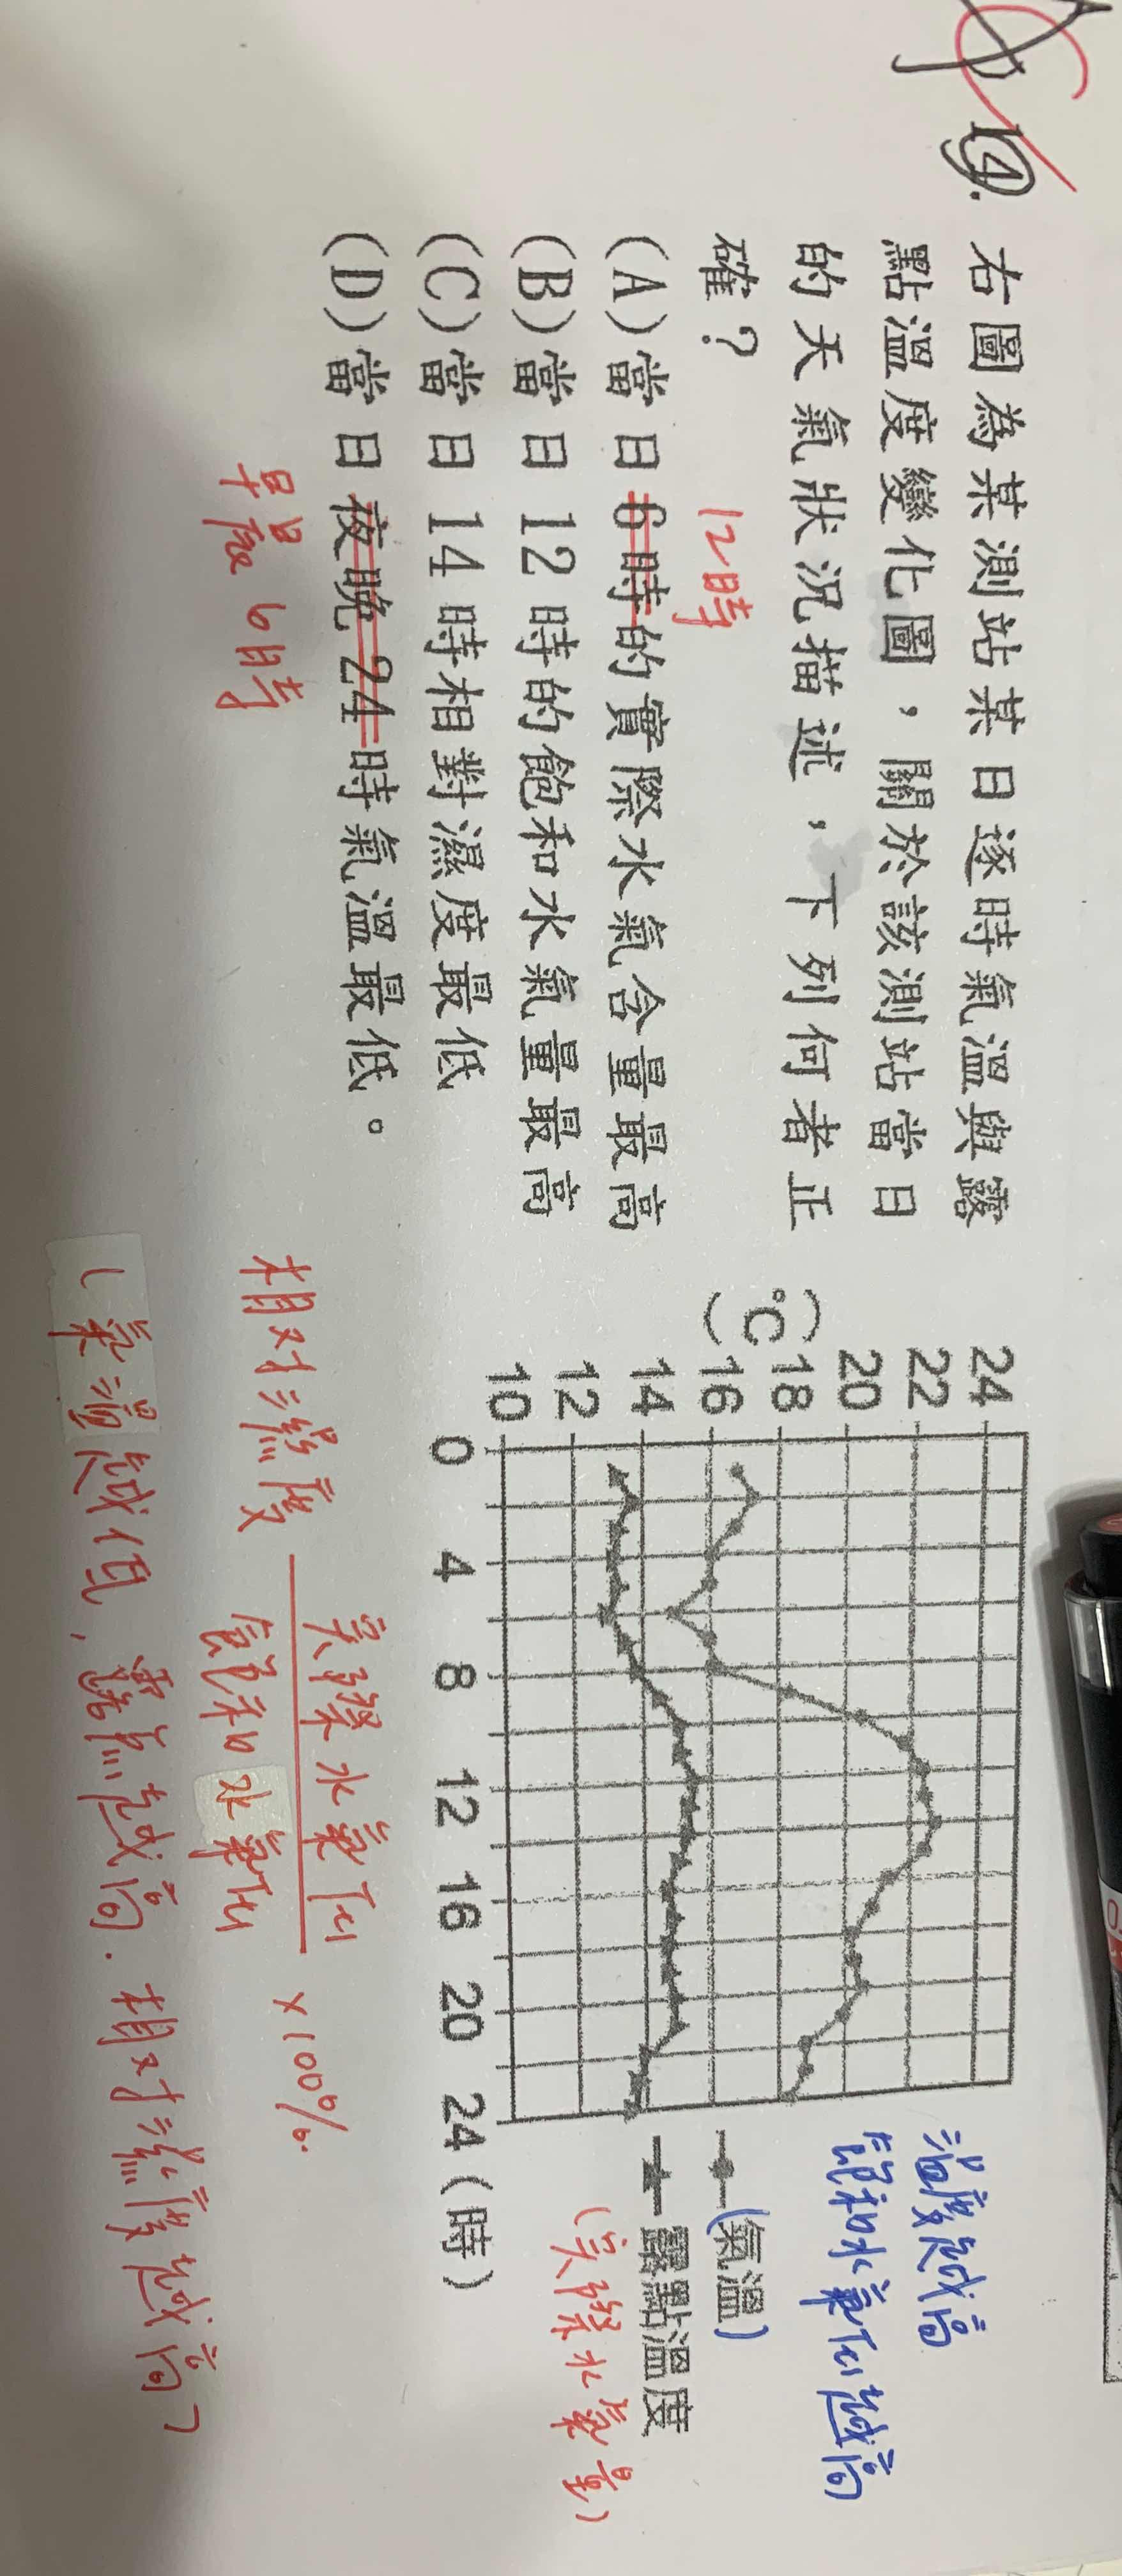 14. 右圖為某測站某日逐時氣溫與露
點溫度變化圖，關於該測站當日
的天氣狀況描述，下列何者正
確？
12時
(A)當日6時的實際水氣含量最高
(B)當日12時的飽和水氣量最高
(C)當日14時相對濕度最低
(D)當日夜晚24時氣溫最低。
早晨6時
(℃)
24
22
20
18
16
14
12
10
0 4 8 12 16 20 24(時)
溫度越高
飽和水氣壓越高
(氣溫)
露點溫度
(實際水氣量)
相對濕度
實際水氣壓
飽和水氣壓
×100%.
氣溫越低、露點越高.相對濕度越高